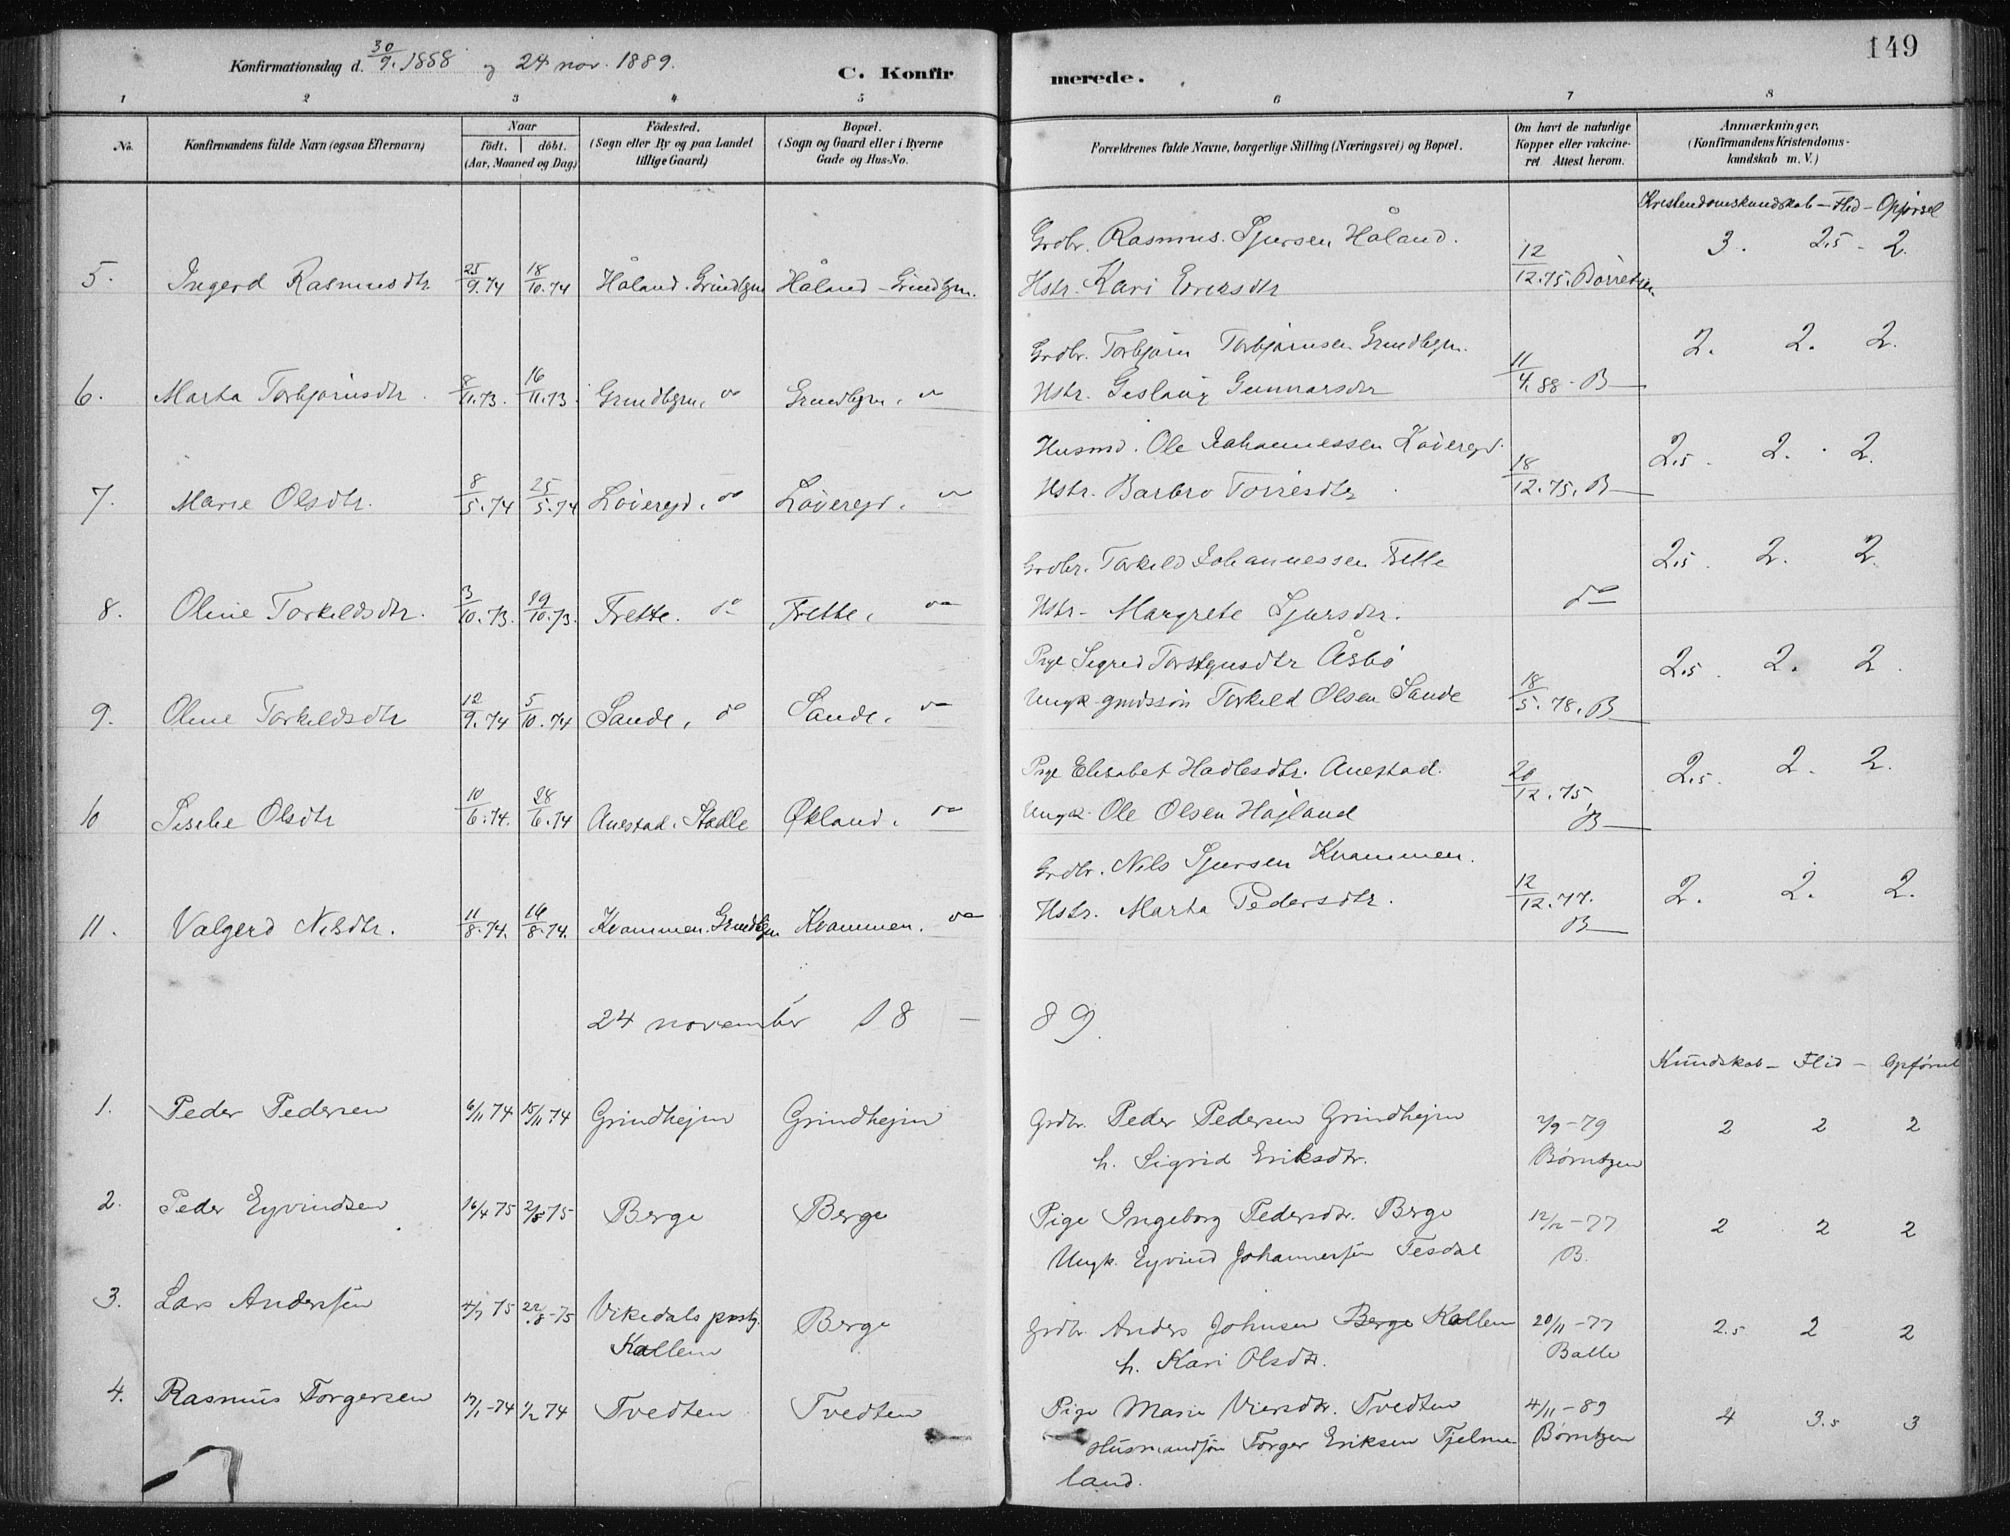 Konfirmationsdag d. 30/9. 1888 og 24 nov. 1889.
C. Konfirmerede.
149
1 2 3 4 5 6 7 8
No.
Konfirmandens fulde Navn (ogsaa Efternavn)
Naar
født. døbt.
(Aar, Maaned og Dag)
Fødested.
(Sogn eller By og paa Landet
tillige Gaard)
Bopæl.
(Sogn og Gaard eller i Byerne
Gade og Hus-No.
Forældrenes fulde Navne, borgerlige Stilling (Næringsvei) og Bopæl.
Om havt de naturlige
Kopper eller vakcine-
ret Attest herom.
Anmærkninger.
(Konfirmandens Kristendoms-
kundskab m. V.)
Kristendomskundskab - Flid - Opførsel
Grdbr. Rasmus Sjursen Håland. 3. 2.5 - 2.
5. Ingerd Rasmusdtr. 25/9.74 18/10.74 Håland. Grindhgm Håland - Grindhgm. Hstr. Kari Eriksdtr 12/12.75. Børretzen
Grdbr. Torbjørn Torbjørnsen Grindhgm. 2. 2. 2.
6. Marta Torbjørnsdtr. 8/11.73. 16/11.73. Grindhgm. do Grindhgm. do Hstr. Geslaug Gunnarsdtr 11/4.88 - B
Husmd. Ole Johannessen Løveregd. 2.5. 2. 2.
7. Marie Olsdtr. 8/5.74 25/5.74 Løveregd. do Løveregd. do Hstr. Barbro Torresdtr 18/12.75. B
Grdbr. Torkild Johannessen Frette 2.5. 2. 2.
8. Oline Torkildsdtr. 3/10.73. 19/10.73. Frette. do Frette. do Hstr. Margrete Sjursdtr. do
Pige Sigrid Torsteinsdtr Åsbø 2.5. 2. 2.
9. Oline Torkildsdtr 12/9.74 5/10.74 Sande. do Sande. do Ungk. gmdssøn Torkild Olsen Sande 18/5.78. B
Pige Elisabet Hadlesdtr. Anestad. 2.5. 2. 2.
10 Siselie Olsdtr 10/6.74. 28/6.74 Anestad. Stødle Økland. do Ungk. Ole Olsen Højland 20/12.75, B
Grdbr. Nils Sjursen Kvammen. 2. 2. 2.
11. Valgerd Nilsdtr. 11/8.74. 16/8.74. Kvammen. Grindhgm Kvammen. do Hstr. Marta Pedersdtr. 12/12.77. B
24 november 18 - 89.
Kundskab - Flid - Opførsel
1. Peder Pedersen 6/11 74 15/11 74 Grindhejm Grindhejm Grdbr. Peder Pedersen Grindhejm 2/9 - 79 2 2 2
h. Sigrid Eriksdtr. Børretzen
2. Peder Eyvindsen 16/4 75 2/5 75 Berge Berge Pige Ingeborg Pedersdtr. Berge 12/12 - 77 2 2 2
Ungk. Eyvind Johannessen Tesdal B.
3. Lars Anderssen 4/7 75 22/8 - 75 Vikedals prstg. Berge Grdbr Anders Johnsen Berge Kallem 20/11 - 77 2.5 2 2
Kallem h. Kari Olsdtr. Balle
4. Rasmus Torgersen 17/1 - 74 1/2 74 Tvedten Tvedten Pige Mari Viersdtr. Tvedten 4/11 - 89 4 3.5 3
Husmandssøn Torger Eriksen Tjelme- Børretzen
land.